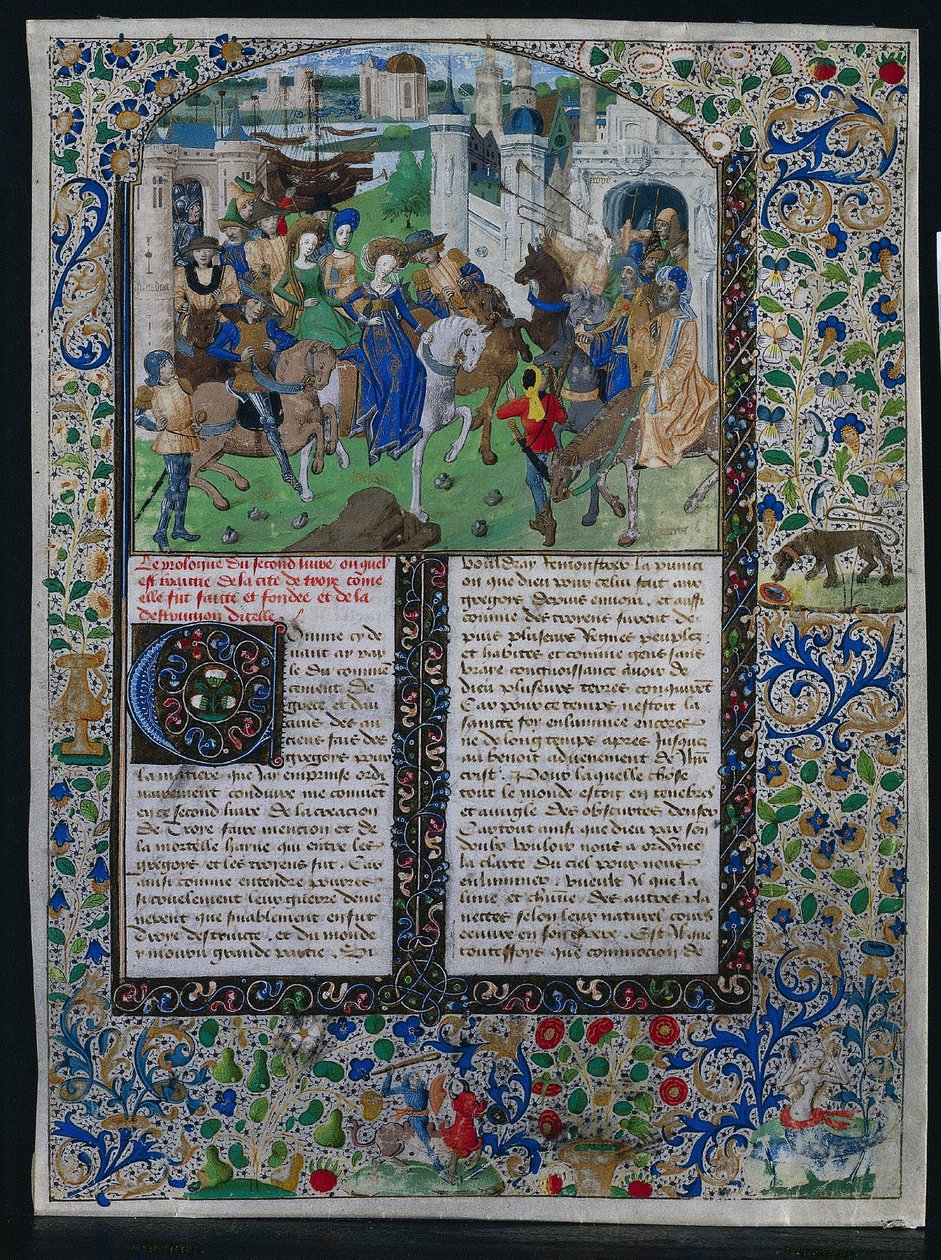 Le prologue du second livre ouquel
est traictie de la cite de troye come
elle fut faicte et fondee et de la
destrucion dicelle
Comme cy de
uant ay par
le du comme
cement de
grece et dau
cuns des an
ciens fais des
gregois pour
la matiere que jay emprinse ordi
nairement conduire me conuient
en ce second liure de la creacion
de Troye faire mencion et de
la mortelle hayne qui entre les
gregois et les troyens fut. Car
ainsi comme entendre pourres
si cruelement leur guerre deme
nerent que finablement en fut
Troye destruicte, et du monde
y mouru grande partie. Si
vouldray demonstrer la punici
on que dieu pour celui fait aux
gregois depuis enuoia. et aussi
comme des troyens furent de
puis plusieurs Regnes peuplez
et habites et comme gens sans
vraye congnoissance auoir de
dieu plusieurs terres conquirent
Car pour ce temps nestoit la
saincte foy enluminee encores
ne de long temps apres Jusques
au benoit aduenement de Jhu
crist. Pour laquelle chose
tout le monde estoit en tenebres
et aueugle des obscurtes
Car tout ainsi que dieu par son
doulz vouloir nous a ordonne
la clarte du ciel pour nous
enluminer. veult Il que la
lune et chune des autres pla
nettes selon leur naturel cours
Est Il que
touteffoys que